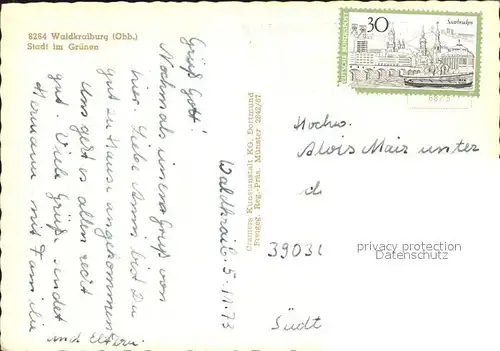 8264 Waldkraiburg (Obb.)
Stadt im Grünen
Waldkraib. 5.11.73
Grüß Gott!
Nochmals innern Gruß von
hier. Liebe Anni bist Du
gut zu Hause angekommen
Uns geht es allen recht
gut. Viele Grüße sendet
Hermann mit Familie
und Eltern.
Cramers Kunstanstalt KG, Dortmund
Freigeg. Reg.-Präs. Münster 2842/67
DEUTSCHE BUNDESPOST
30
Saarbrücken
Hochw.
Alois Mair unter
39031
Südt
privacy protection
watermark